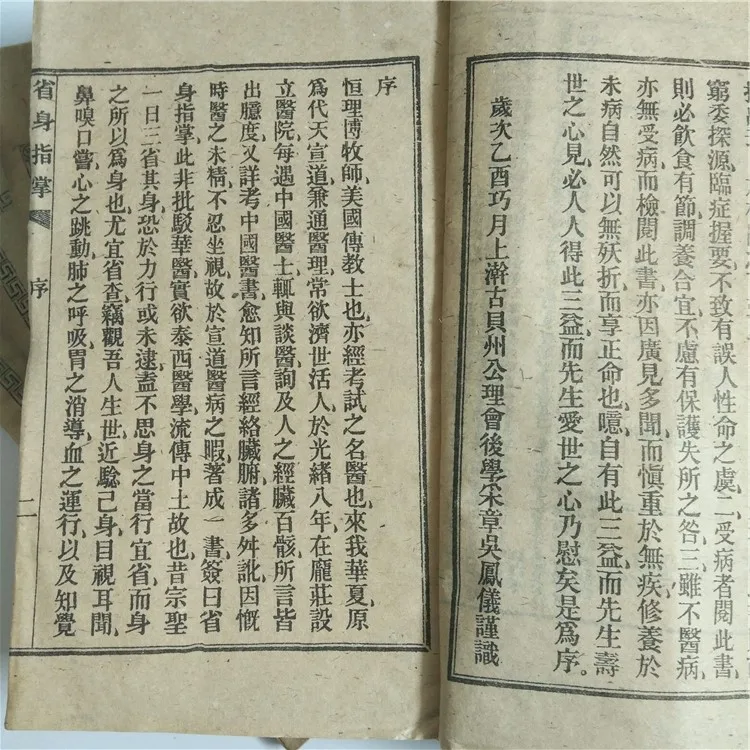 窮委探源臨症握要不致有誤人性命之虞二受病者閱此書
則必飲食有節調養合宜不慮有保護失所之咎三雖不醫病
亦無受病而檢閱此書亦因廣見多聞而慎重於無疾修養於
未病自然可以無殀折而享正命也噫自有此三益而先生壽
世之心見必人人得此三益而先生愛世之心乃慰矣是為序。
歲次乙酉巧月上澣古貝州公理會後學宋章吳鳳儀謹識
序
恒理博牧師美國傳教士也亦經考試之名醫也來我華夏原
為代天宣道兼通醫理常欲濟世活人於光緒八年在龐莊設
立醫院每遇中國醫士輒與談醫詢及人之經臟百骸所言皆
出臆度又詳考中國醫書愈知所言經絡臟腑諸多舛訛因慨
時醫之未精不忍坐視故於宣道醫病之暇著成一書簽曰省
身指掌此非批駁華醫實欲泰西醫學流傳中土故也昔宗聖
一日三省其身恐於力行或未逮盍不思身之當行宜省而身
之所以為身也尤宜省查竊觀吾人生世近騐己身目視耳聞
鼻嗅口嘗心之跳動肺之呼吸胃之消導血之運行以及知覺
省身指掌 序 二